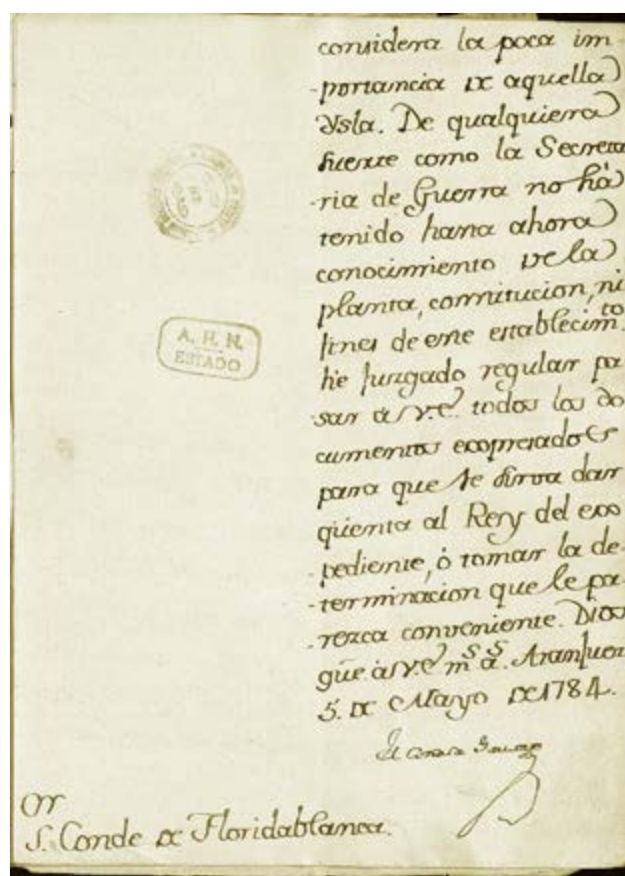 considera la poca im-
-portancia de aquella
Ysla. De qualquiera
suerte como la Secreta
-ria de Guerra no hà
tenido hasta ahora
conocimiento de la
planta, constitucion, ni
fines de este establecim.to
hè juzgado regular pa
-sar à V.E. todos los do
cumentos expresados
para que se sirva dar
qüenta al Rey del exp
-pediente, ò tomar la de-
-terminacion que le pa-
-rezca conveniente. Dios
gũe à V.E. m.s a.s Aranjuez
5. de Mayo de 1784.
A. H. N.
ESTADO
El Conde de
S.or Conde de Floridablanca.